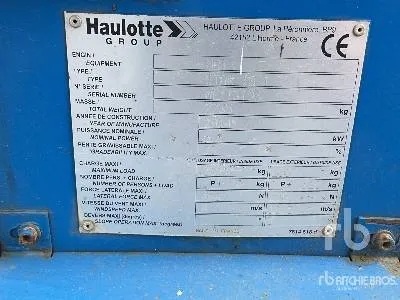 Haulotte
GROUP
HAULOTTE GROUP La Péronnière, BP9
42152 L'horme - France
CE
ENGIN /
EQUIPMENT
TYPE /
TYPE
N° SERIE /
SERIAL NUMBER
MASSE /
TOTAL WEIGHT
kg
ANNEE DE CONSTRUCTION /
YEAR OF MANUFACTURE
PUISSANCE NOMINALE /
NOMINAL POWER
kW
PENTE GRAVISSABLE MAXI /
GRADEABILITY MAX.
%
CHARGE MAXI /
MAXIMUM LOAD
kg kg
NOMBRE PERS + CHARGE /
NUMBER OF PERSONS + LOAD
P + kg P + kg
FORCE LATERALE MAXI /
LATERAL FORCE MAX
N N
VITESSE DU VENT MAXI /
WINDSPEED MAX.
m/s m/s
DEVERS MAXI (degrés) /
SLOPE OPERATION MAX.
rb
RITCHIE BROS